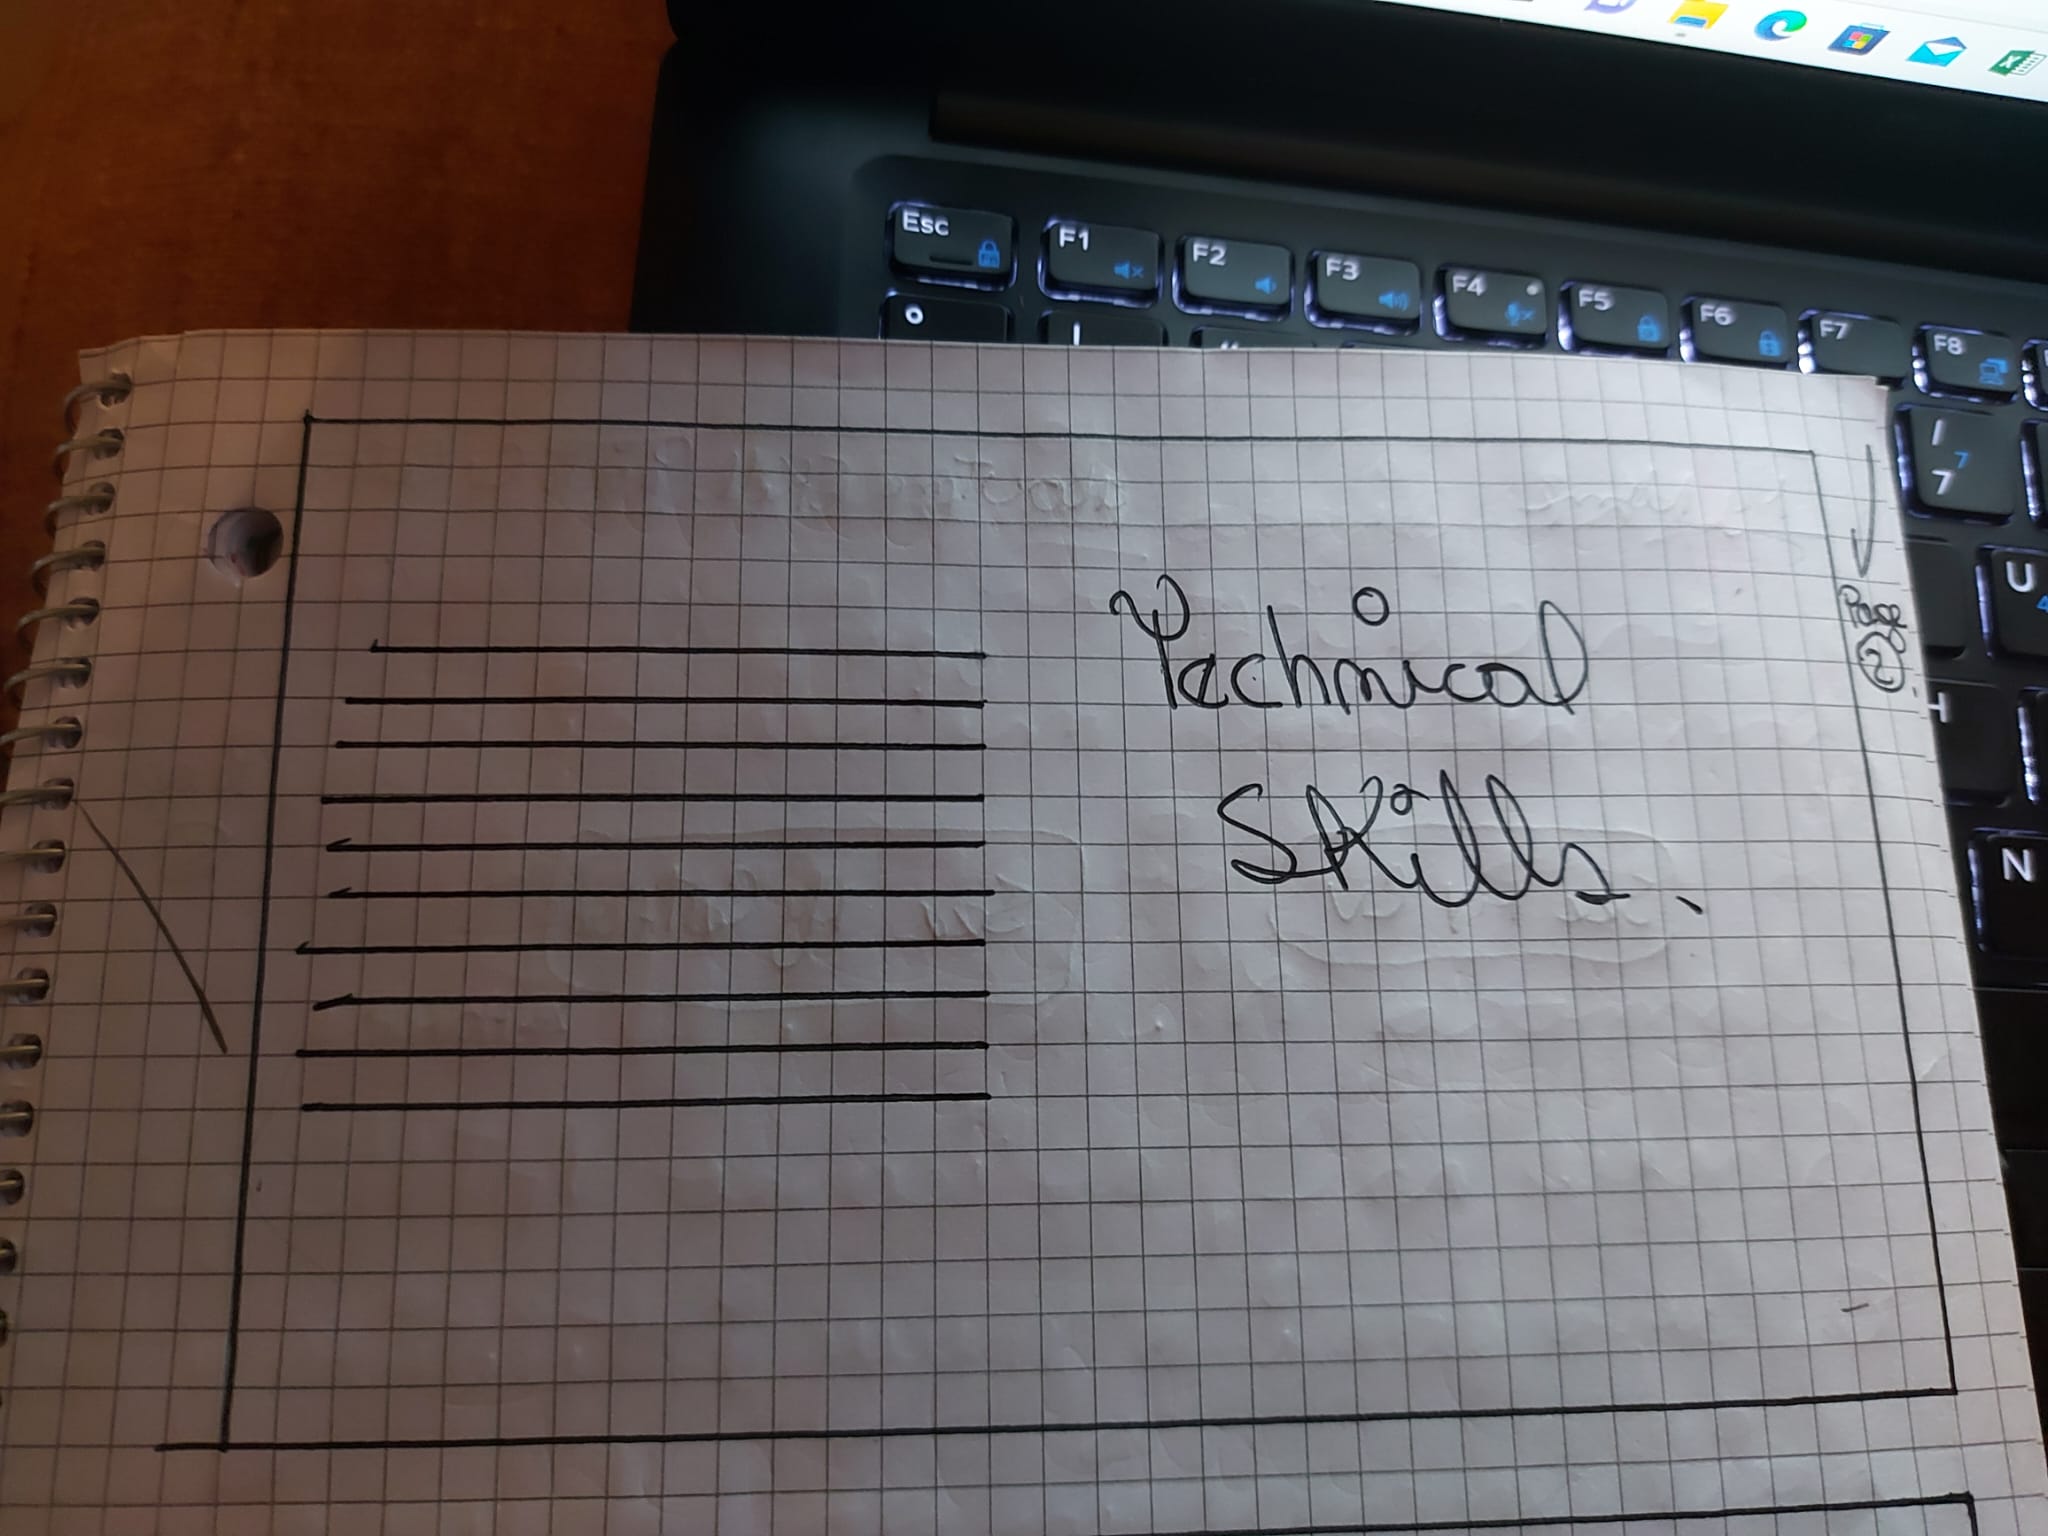 Esc
F1
F2
F3
F4
F5
F6
F7
F8
/
7
7
U
4
H
N
Technical
Skills.
Page
2